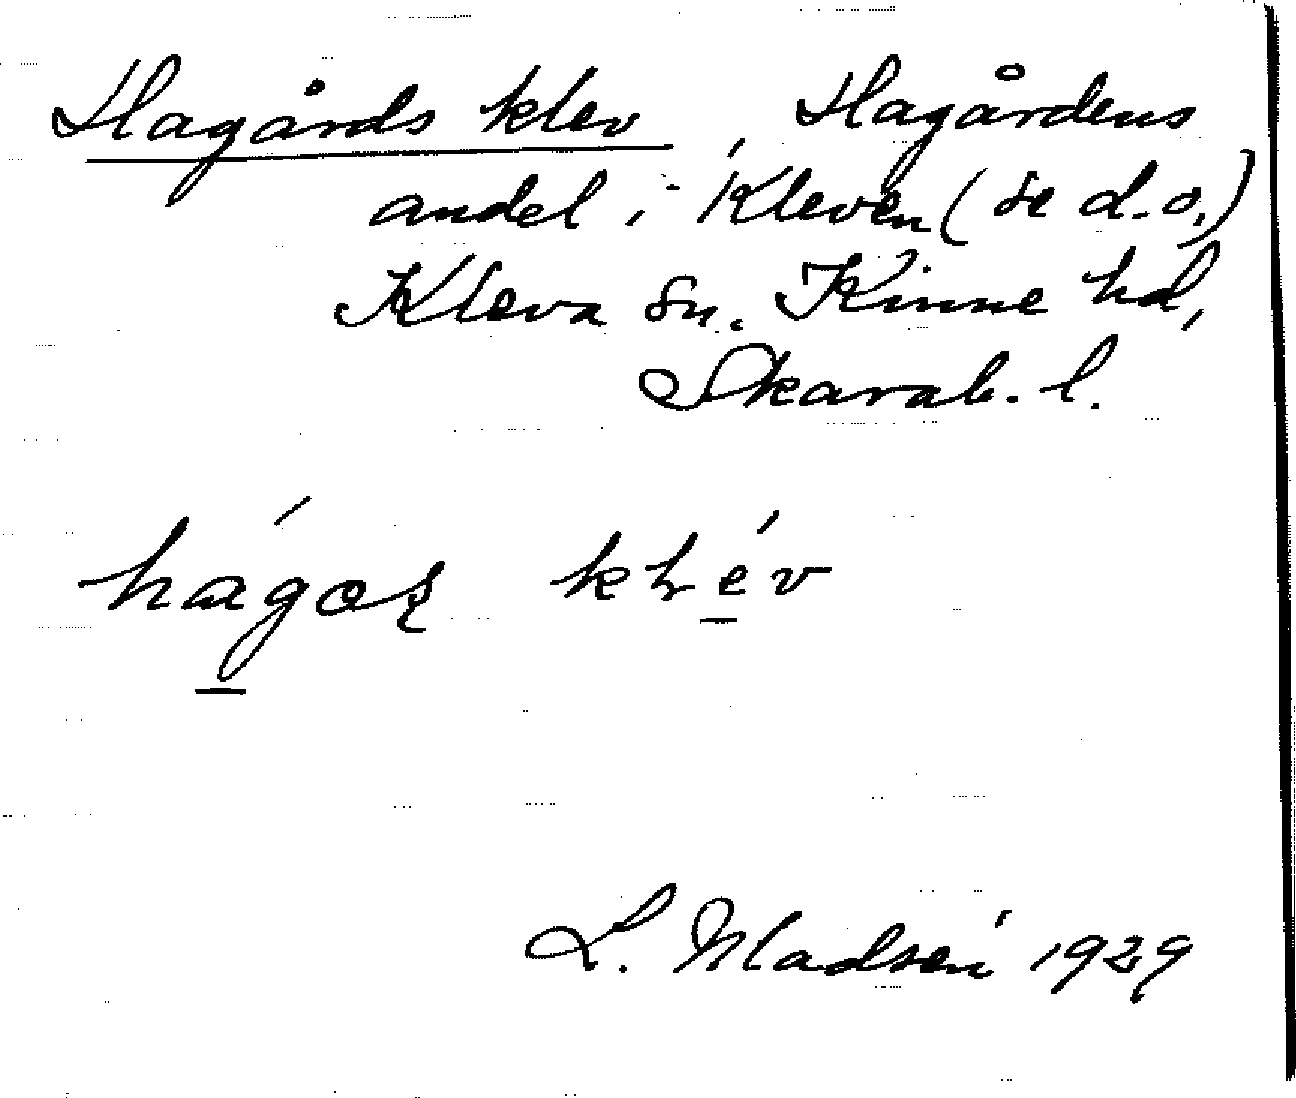 Hagårds klev, Hagårdens
andel i Kleven (se d.o.)
Kleva sn. Kinne hd,
Skarab. l.
L. Madsén 1929